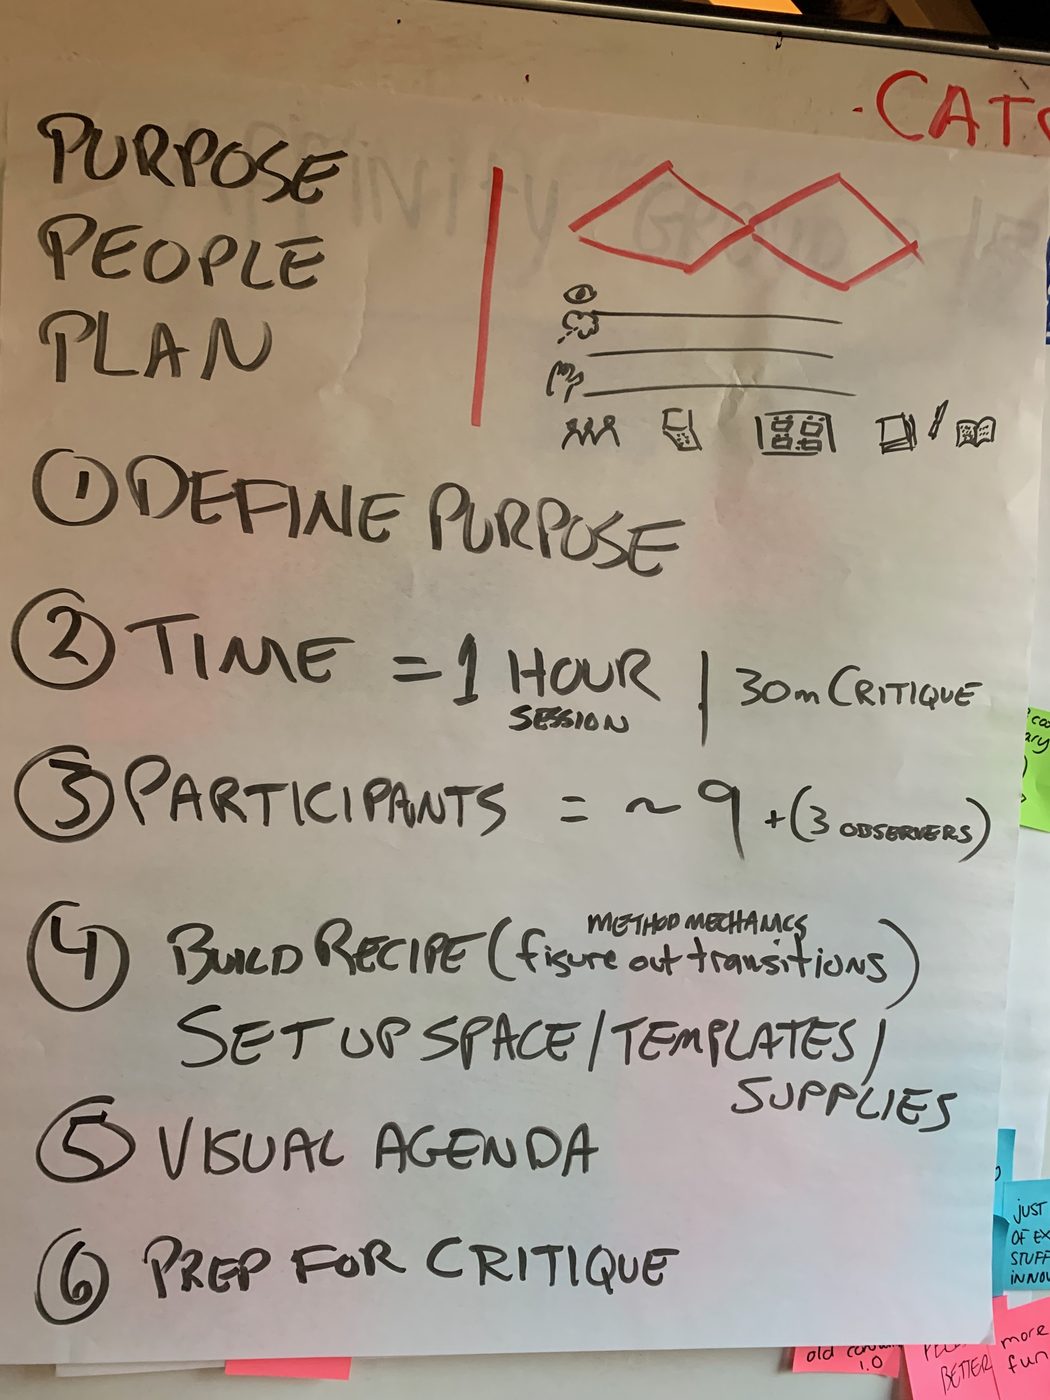 PURPOSE
PEOPLE
PLAN
① DEFINE PURPOSE
② TIME = 1 HOUR SESSION | 30m CRITIQUE
③ PARTICIPANTS = ~ 9 + (3 OBSERVERS)
METHOD MECHANICS
④ BUILD RECIPE (figure out transitions)
SET UP SPACE / TEMPLATES /
SUPPLIES
⑤ VISUAL AGENDA
⑥ PREP FOR CRITIQUE
just
OF EX
STUFF
INNOV
old
1.0
BETTER
more
fun